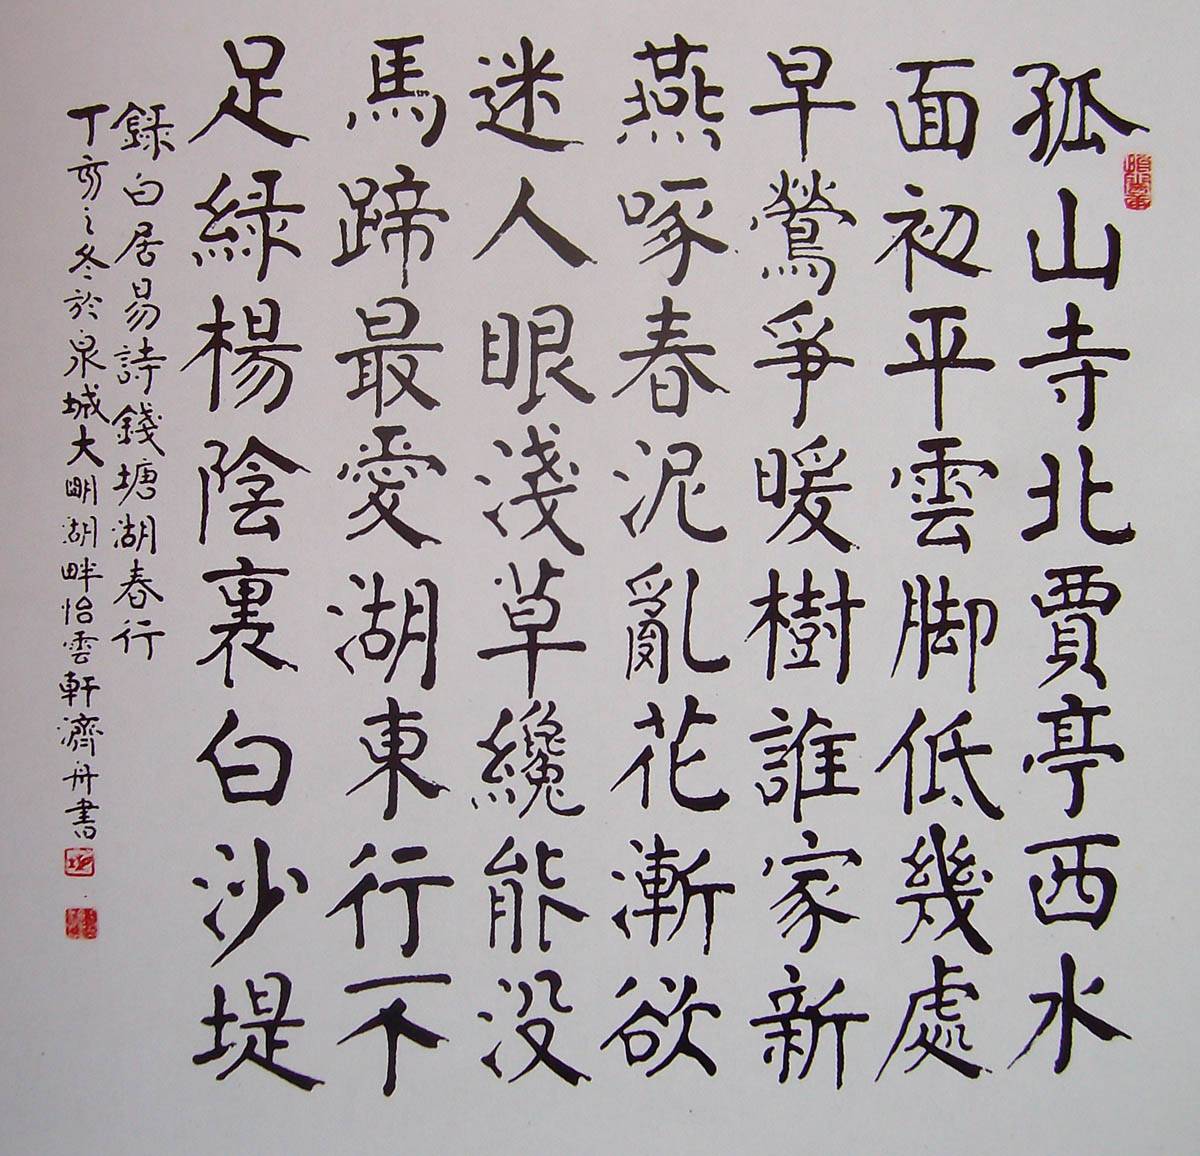 孤山寺北賈亭西水
面初平雲脚低幾處
早鶯爭暖樹誰家新
燕啄春泥亂花漸欲
迷人眼淺草纔能没
馬蹄最愛湖東行不
足綠楊陰裏白沙堤
錄白居易詩錢塘湖春行
丁亥之冬於泉城大明湖畔怡雲軒濟舟書